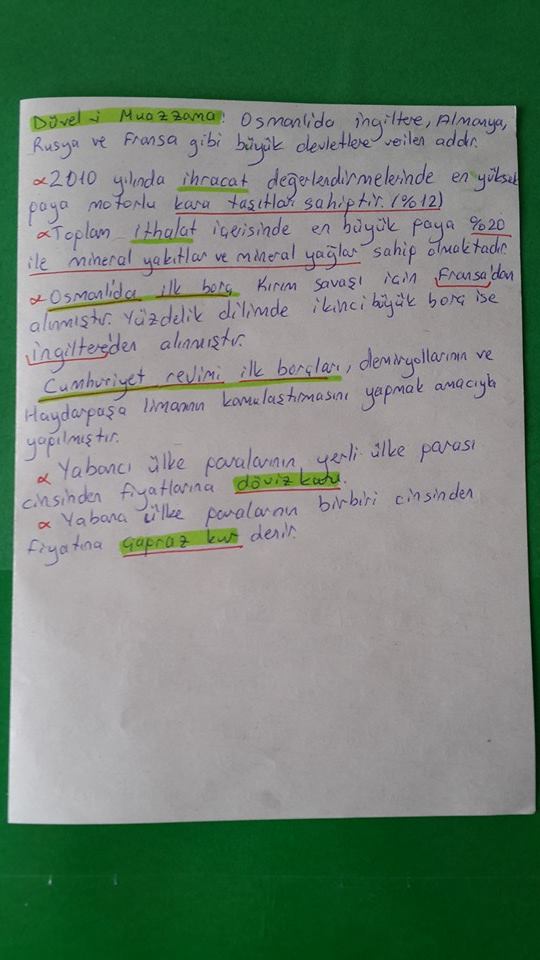 Düvel-i Muazzama: Osmanlıda ingiltere, Almanya,
Rusya ve Fransa gibi büyük devletlere verilen addır.
∝2010 yılında ihracat değerlendirmelerinde en yüksek
paya motorlu kara taşıtları sahiptir. (%12)
∝Toplam ithalat içerisinde en büyük paya %20
ile mineral yakıtlar ve mineral yağlar sahip olmaktadır.
∝Osmanlıda ilk borç Kırım savaşı için Fransa'dan
alınmıştır. Yüzdelik dilimde ikinci büyük borç ise
ingiltere'den alınmıştır.
Cumhuriyet rejimi ilk borçları, demiryollarının ve
Haydarpaşa limanının kamulaştırmasını yapmak amacıyla
yapılmıştır.
∝ Yabancı ülke paralarının yerli ülke parası
cinsinden fiyatlarına döviz kuru.
∝ Yabancı ülke paralarının birbiri cinsinden
fiyatına çapraz kur denir.